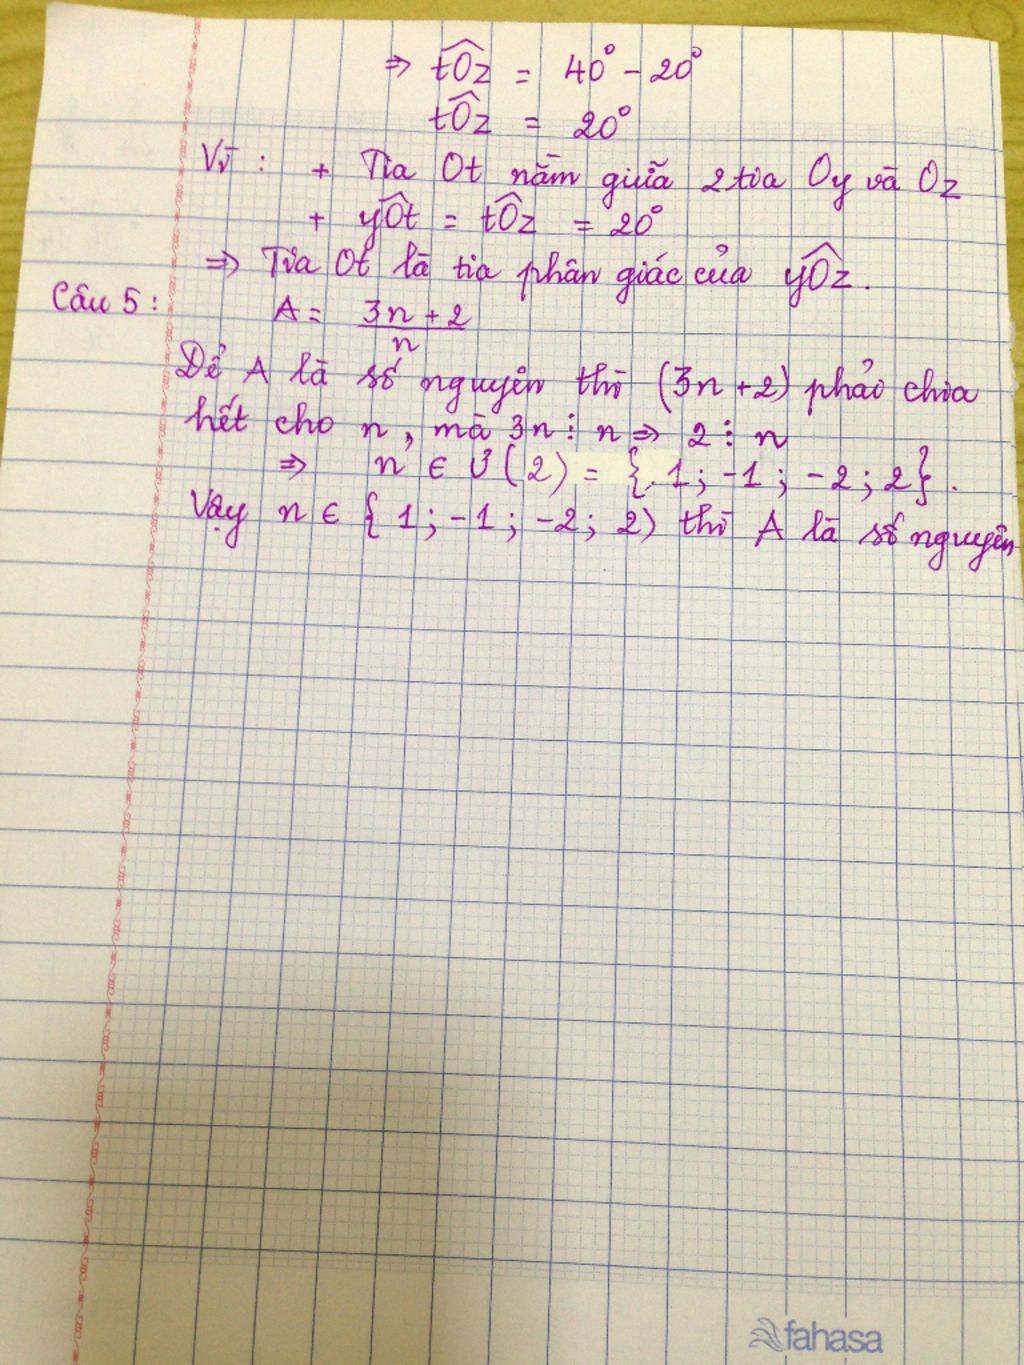 ⇒ tÔz = 40° - 20°
tÔz = 20°
Vì : + Tia Ot nằm giữa 2 tia Oy và Oz
+ yÔt = tÔz = 20°
⇒ Tia Ot là tia phân giác của yÔz.
Câu 5 : A = (3n + 2)/n
Để A là số nguyên thì (3n + 2) phải chia
hết cho n, mà 3n ⋮ n ⇒ 2 ⋮ n
⇒ n ∈ Ư(2) = { 1 ; -1 ; -2 ; 2 }.
Vậy n ∈ { 1 ; -1 ; -2 ; 2 ) thì A là số nguyên
fahasa